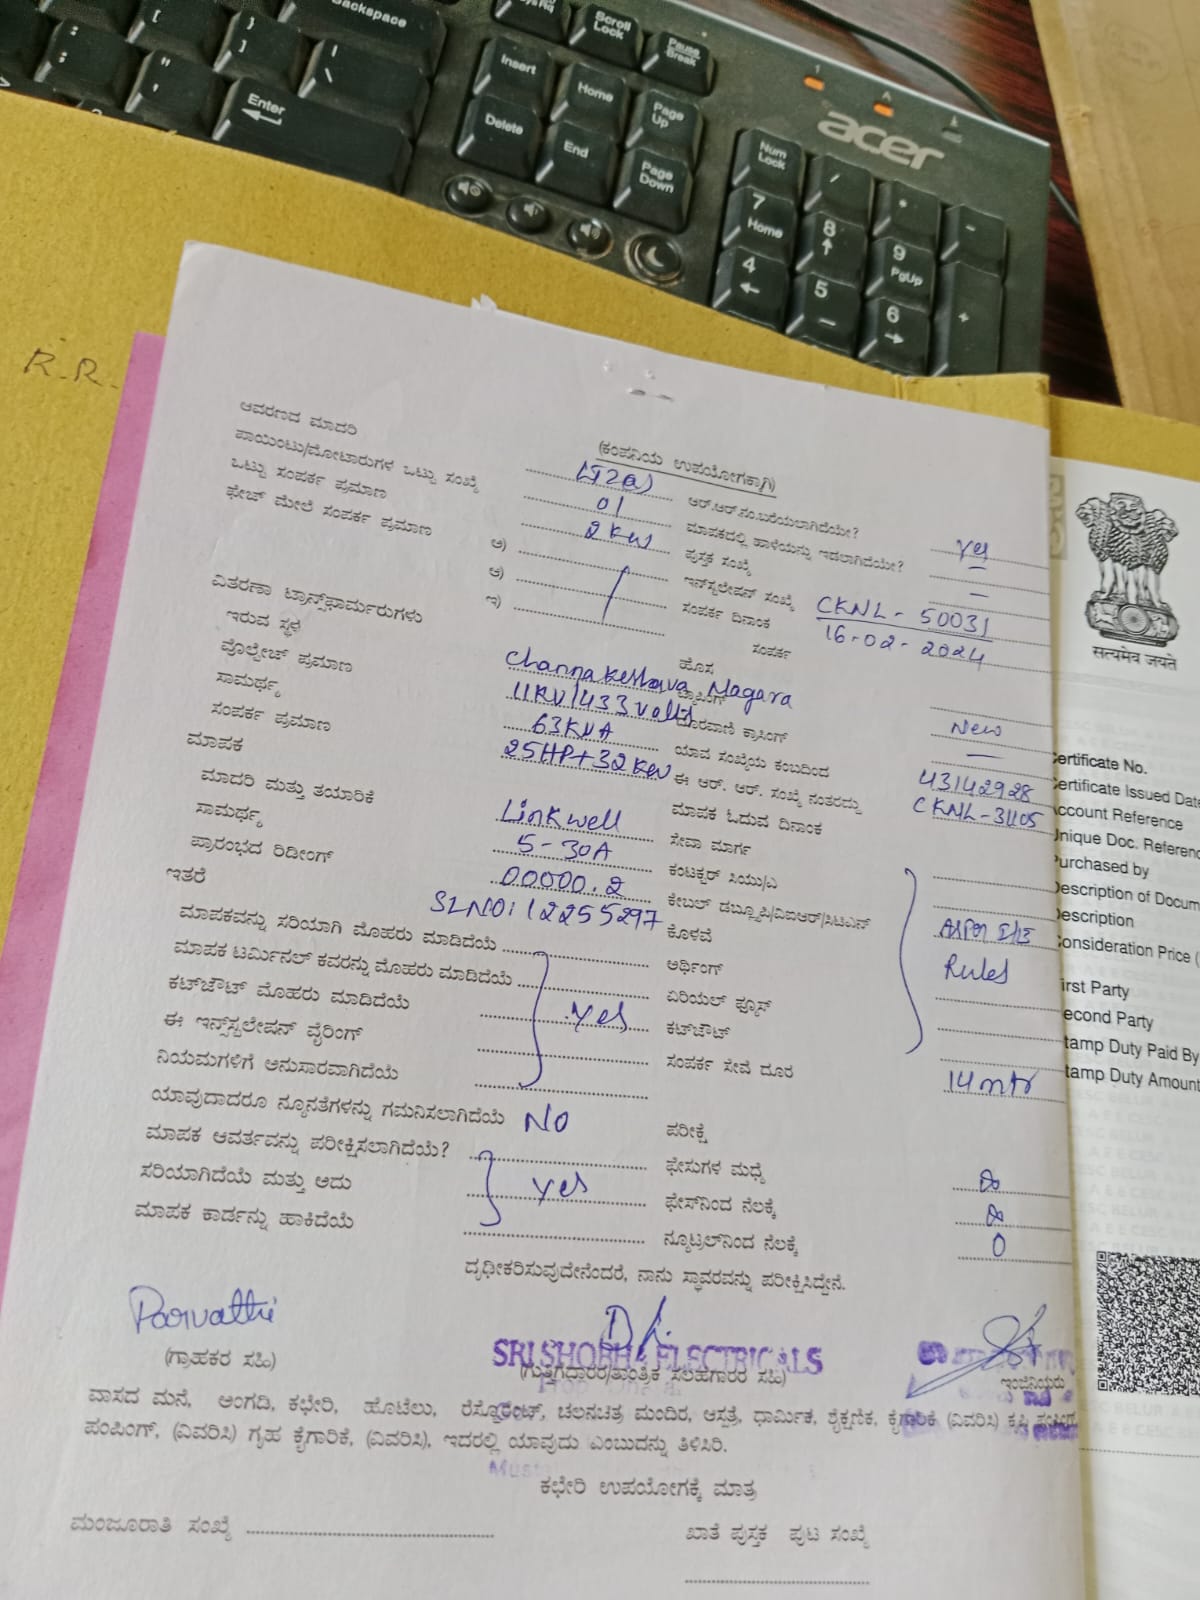 Backspace
Scroll Lock
Pause Break
Insert
Home
Page Up
Enter
Delete
End
Page Down
acer
Num Lock
/
*
-
7 Home
8
9 PgUp
4
5
6
+
R.R.
(ಕಂಪನಿಯ ಉಪಯೋಗಕ್ಕಾಗಿ)
ಆವರಣದ ಮಾದರಿ LT2(a) ಆರ್.ಆರ್.ನಂ.ಬರೆಯಲಾಗಿದೆಯೇ? yes
ಪಾಯಿಂಟು/ಮೋಟಾರುಗಳ ಒಟ್ಟು ಸಂಖ್ಯೆ 01 ಮಾಪಕದಲ್ಲಿ ಹಾಳೆಯನ್ನು ಇಡಲಾಗಿದೆಯೇ? —
ಒಟ್ಟು ಸಂಪರ್ಕ ಪ್ರಮಾಣ 2kw ಪುಸ್ತಕ ಸಂಖ್ಯೆ —
ಫೇಜ್ ಮೇಲೆ ಸಂಪರ್ಕ ಪ್ರಮಾಣ ಅ) ಇನ್‌ಸ್ಟಲೇಷನ್ ಸಂಖ್ಯೆ CKNL-50031
ಆ) ಸಂಪರ್ಕ ದಿನಾಂಕ 16-02-2024
ಇ) ಸಂಪರ್ಕ
ವಿತರಣಾ ಟ್ರಾನ್ಸ್‌ಫಾರ್ಮರುಗಳು ಹೊಸ
ಇರುವ ಸ್ಥಳ Channakeshava Nagara
ವೊಲ್ಟೇಜ್ ಪ್ರಮಾಣ 11KV/433volts ದೂರವಾಣಿ ಕ್ರಾಸಿಂಗ್ New
ಸಾಮರ್ಥ್ಯ 63KVA ಯಾವ ಸಂಖ್ಯೆಯ ಕಂಬದಿಂದ —
ಸಂಪರ್ಕ ಪ್ರಮಾಣ 25HP+32kw ಈ ಆರ್. ಆರ್. ಸಂಖ್ಯೆ ನಂತರದ್ದು 43142928
ಮಾಪಕ ಮಾಪಕ ಓದುವ ದಿನಾಂಕ CKNL-31105
ಮಾದರಿ ಮತ್ತು ತಯಾರಿಕೆ Linkwell ಸೇವಾ ಮಾರ್ಗ
ಸಾಮರ್ಥ್ಯ 5-30A ಕಂಟಕ್ಟರ್ ಸಿಯು/ಎ
ಪ್ರಾರಂಭದ ರಿಡೀಂಗ್ 00000.2 ಕೇಬಲ್ ಡಬ್ಲ್ಯೂಪಿ/ವಿಐಆರ್/ಸಿಟಿಎಸ್
ಇತರೆ SLNO:12255297 ಕೊಳವೆ
ಮಾಪಕವನ್ನು ಸರಿಯಾಗಿ ಮೊಹರು ಮಾಡಿದೆಯೆ ಆರ್ಥಿಂಗ್ Rules
ಮಾಪಕ ಟರ್ಮಿನಲ್ ಕವರನ್ನು ಮೊಹರು ಮಾಡಿದೆಯೆ ಏರಿಯಲ್ ಫ್ಯೂಸ್
ಕಟ್‌ಔಟ್ ಮೊಹರು ಮಾಡಿದೆಯೆ yes ಕಟ್‌ಔಟ್
ಈ ಇನ್ಸ್‌ಸ್ಟಲೇಷನ್ ವೈರಿಂಗ್ ಸಂಪರ್ಕ ಸೇವೆ ದೂರ 14mtr
ನಿಯಮಗಳಿಗೆ ಅನುಸಾರವಾಗಿದೆಯೆ
ಯಾವುದಾದರೂ ನ್ಯೂನತೆಗಳನ್ನು ಗಮನಿಸಲಾಗಿದೆಯೆ NO ಪರೀಕ್ಷೆ
ಮಾಪಕ ಆವರ್ತವನ್ನು ಪರೀಕ್ಷಿಸಲಾಗಿದೆಯೆ? ಫೇಸುಗಳ ಮಧ್ಯೆ ∞
ಸರಿಯಾಗಿದೆಯೆ ಮತ್ತು ಅದು yes ಫೇಸ್‌ನಿಂದ ನೆಲಕ್ಕೆ ∞
ಮಾಪಕ ಕಾರ್ಡನ್ನು ಹಾಕಿದೆಯೆ ನ್ಯೂಟ್ರಲ್‌ನಿಂದ ನೆಲಕ್ಕೆ 0
ದೃಢೀಕರಿಸುವುದೇನೆಂದರೆ, ನಾನು ಸ್ಥಾವರವನ್ನು ಪರೀಕ್ಷಿಸಿದ್ದೇನೆ.
Parvathi
SRI SHOBHA ELECTRICALS
(ಗ್ರಾಹಕರ ಸಹಿ) (ಗುತ್ತಿಗೆದಾರರ/ತಾಂತ್ರಿಕ ಸಲಹಗಾರರ ಸಹಿ) ಇಂಜಿನಿಯರು
ವಾಸದ ಮನೆ, ಅಂಗಡಿ, ಕಛೇರಿ, ಹೊಟೆಲು, ರೆಸ್ಟೊರೆಂಟ್, ಚಲನಚಿತ್ರ ಮಂದಿರ, ಆಸ್ಪತ್ರೆ, ಧಾರ್ಮಿಕ, ಶೈಕ್ಷಣಿಕ, ಕೈಗಾರಿಕೆ, (ವಿವರಿಸಿ) ಕೃಷಿ
ಪಂಪಿಂಗ್, (ವಿವರಿಸಿ) ಗೃಹ ಕೈಗಾರಿಕೆ, (ವಿವರಿಸಿ), ಇದರಲ್ಲಿ ಯಾವುದು ಎಂಬುದನ್ನು ತಿಳಿಸಿರಿ.
ಕಛೇರಿ ಉಪಯೋಗಕ್ಕೆ ಮಾತ್ರ
ಮಂಜೂರಾತಿ ಸಂಖ್ಯೆ ಖಾತೆ ಪುಸ್ತಕ ಪುಟ ಸಂಖ್ಯೆ
सत्यमेव जयते
ertificate No.
ertificate Issued Date
ccount Reference
nique Doc. Referenc
urchased by
escription of Docum
escription
onsideration Price (
irst Party
econd Party
tamp Duty Paid By
tamp Duty Amount